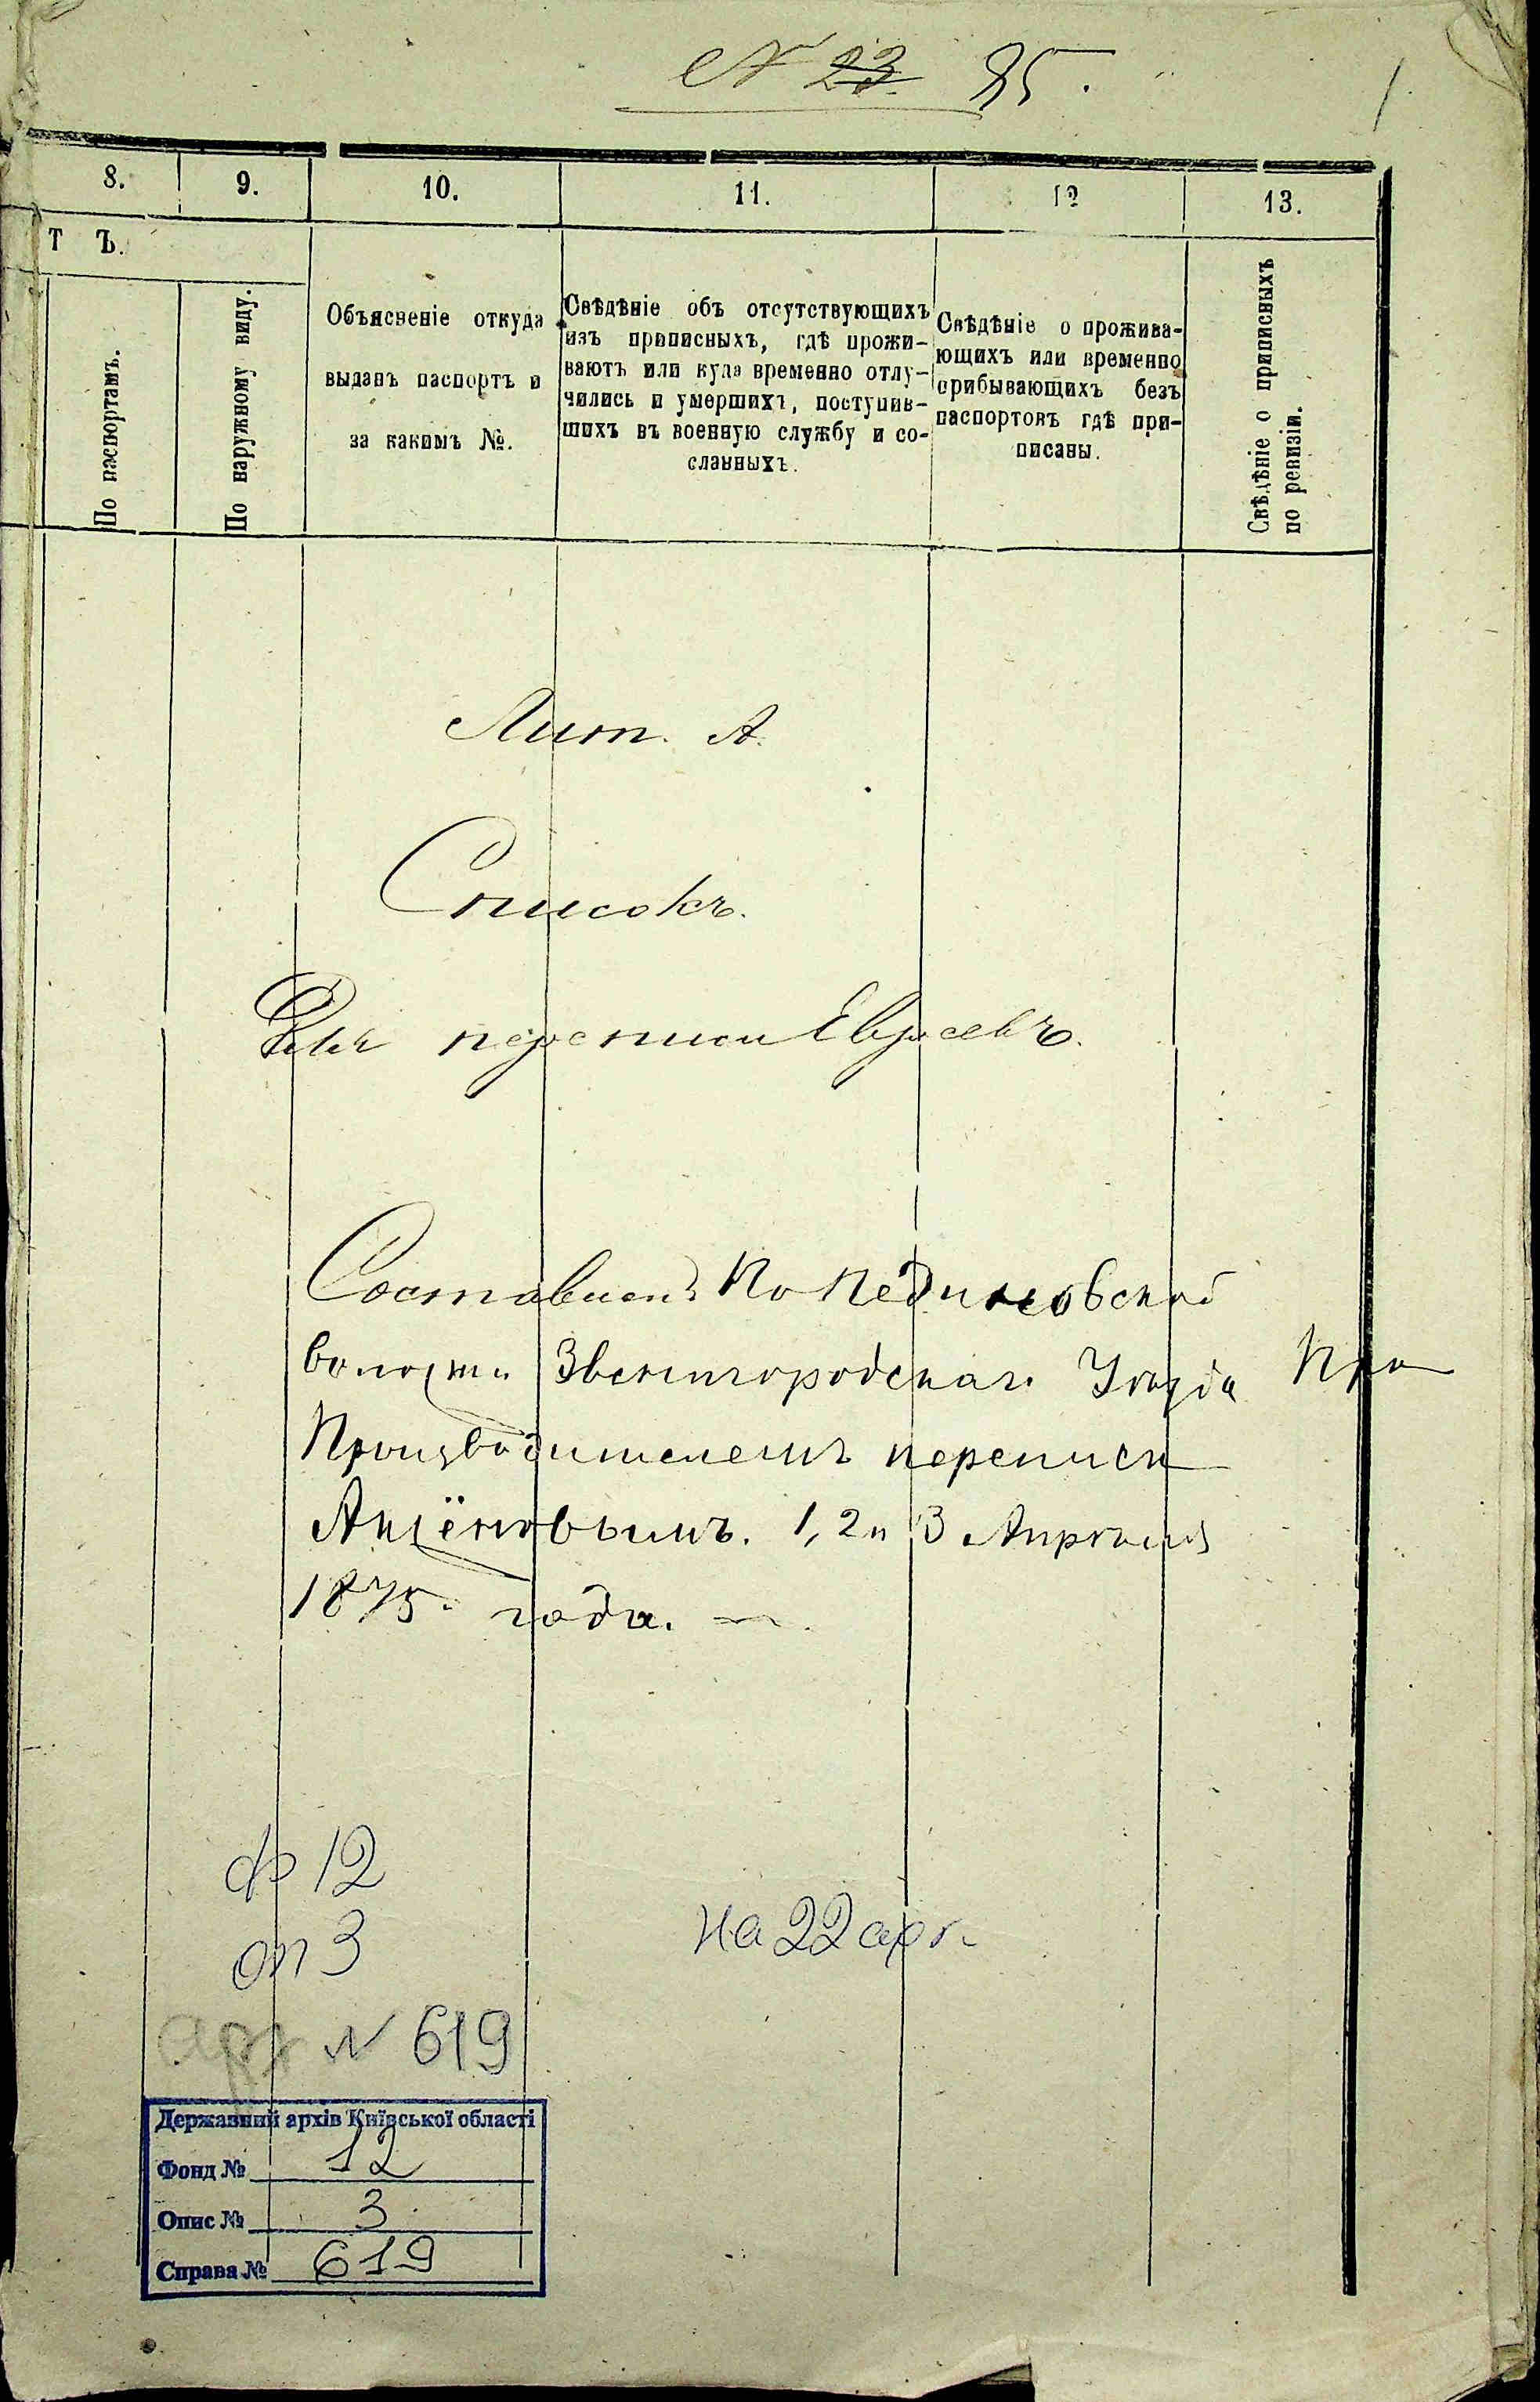 № 23. 85.
1
8. 9. 10. 11. 12 13.
Т Ъ.
По паспортамъ.
По наружному виду.
Объясненіе откуда
выданъ паспортъ и
за какимъ №.
Свѣдѣніе объ отсутствующихъ
изъ приписныхъ, гдѣ прожи-
ваютъ или куда временно отлу-
чились и умершихъ, поступив-
шихъ въ военную службу и со-
сланныхъ.
Свѣдѣніе о прожива-
ющихъ или временно
прибывающихъ безъ
паспортовъ гдѣ при-
писаны.
Свѣдѣніе о приписныхъ
по ревизіи.
Лит. А.
Списокъ.
Для переписи Евреевъ.
Составленъ По
волости Звенигородскаго Уѣзда Про
Производителемъ переписи
1, 2 и 3 Апрѣля
1875. года.
ф 12
оп 3
№ 619
на 22 арк.
Державний архів Київської області
Фонд № 12
Опис № 3
Справа № 619